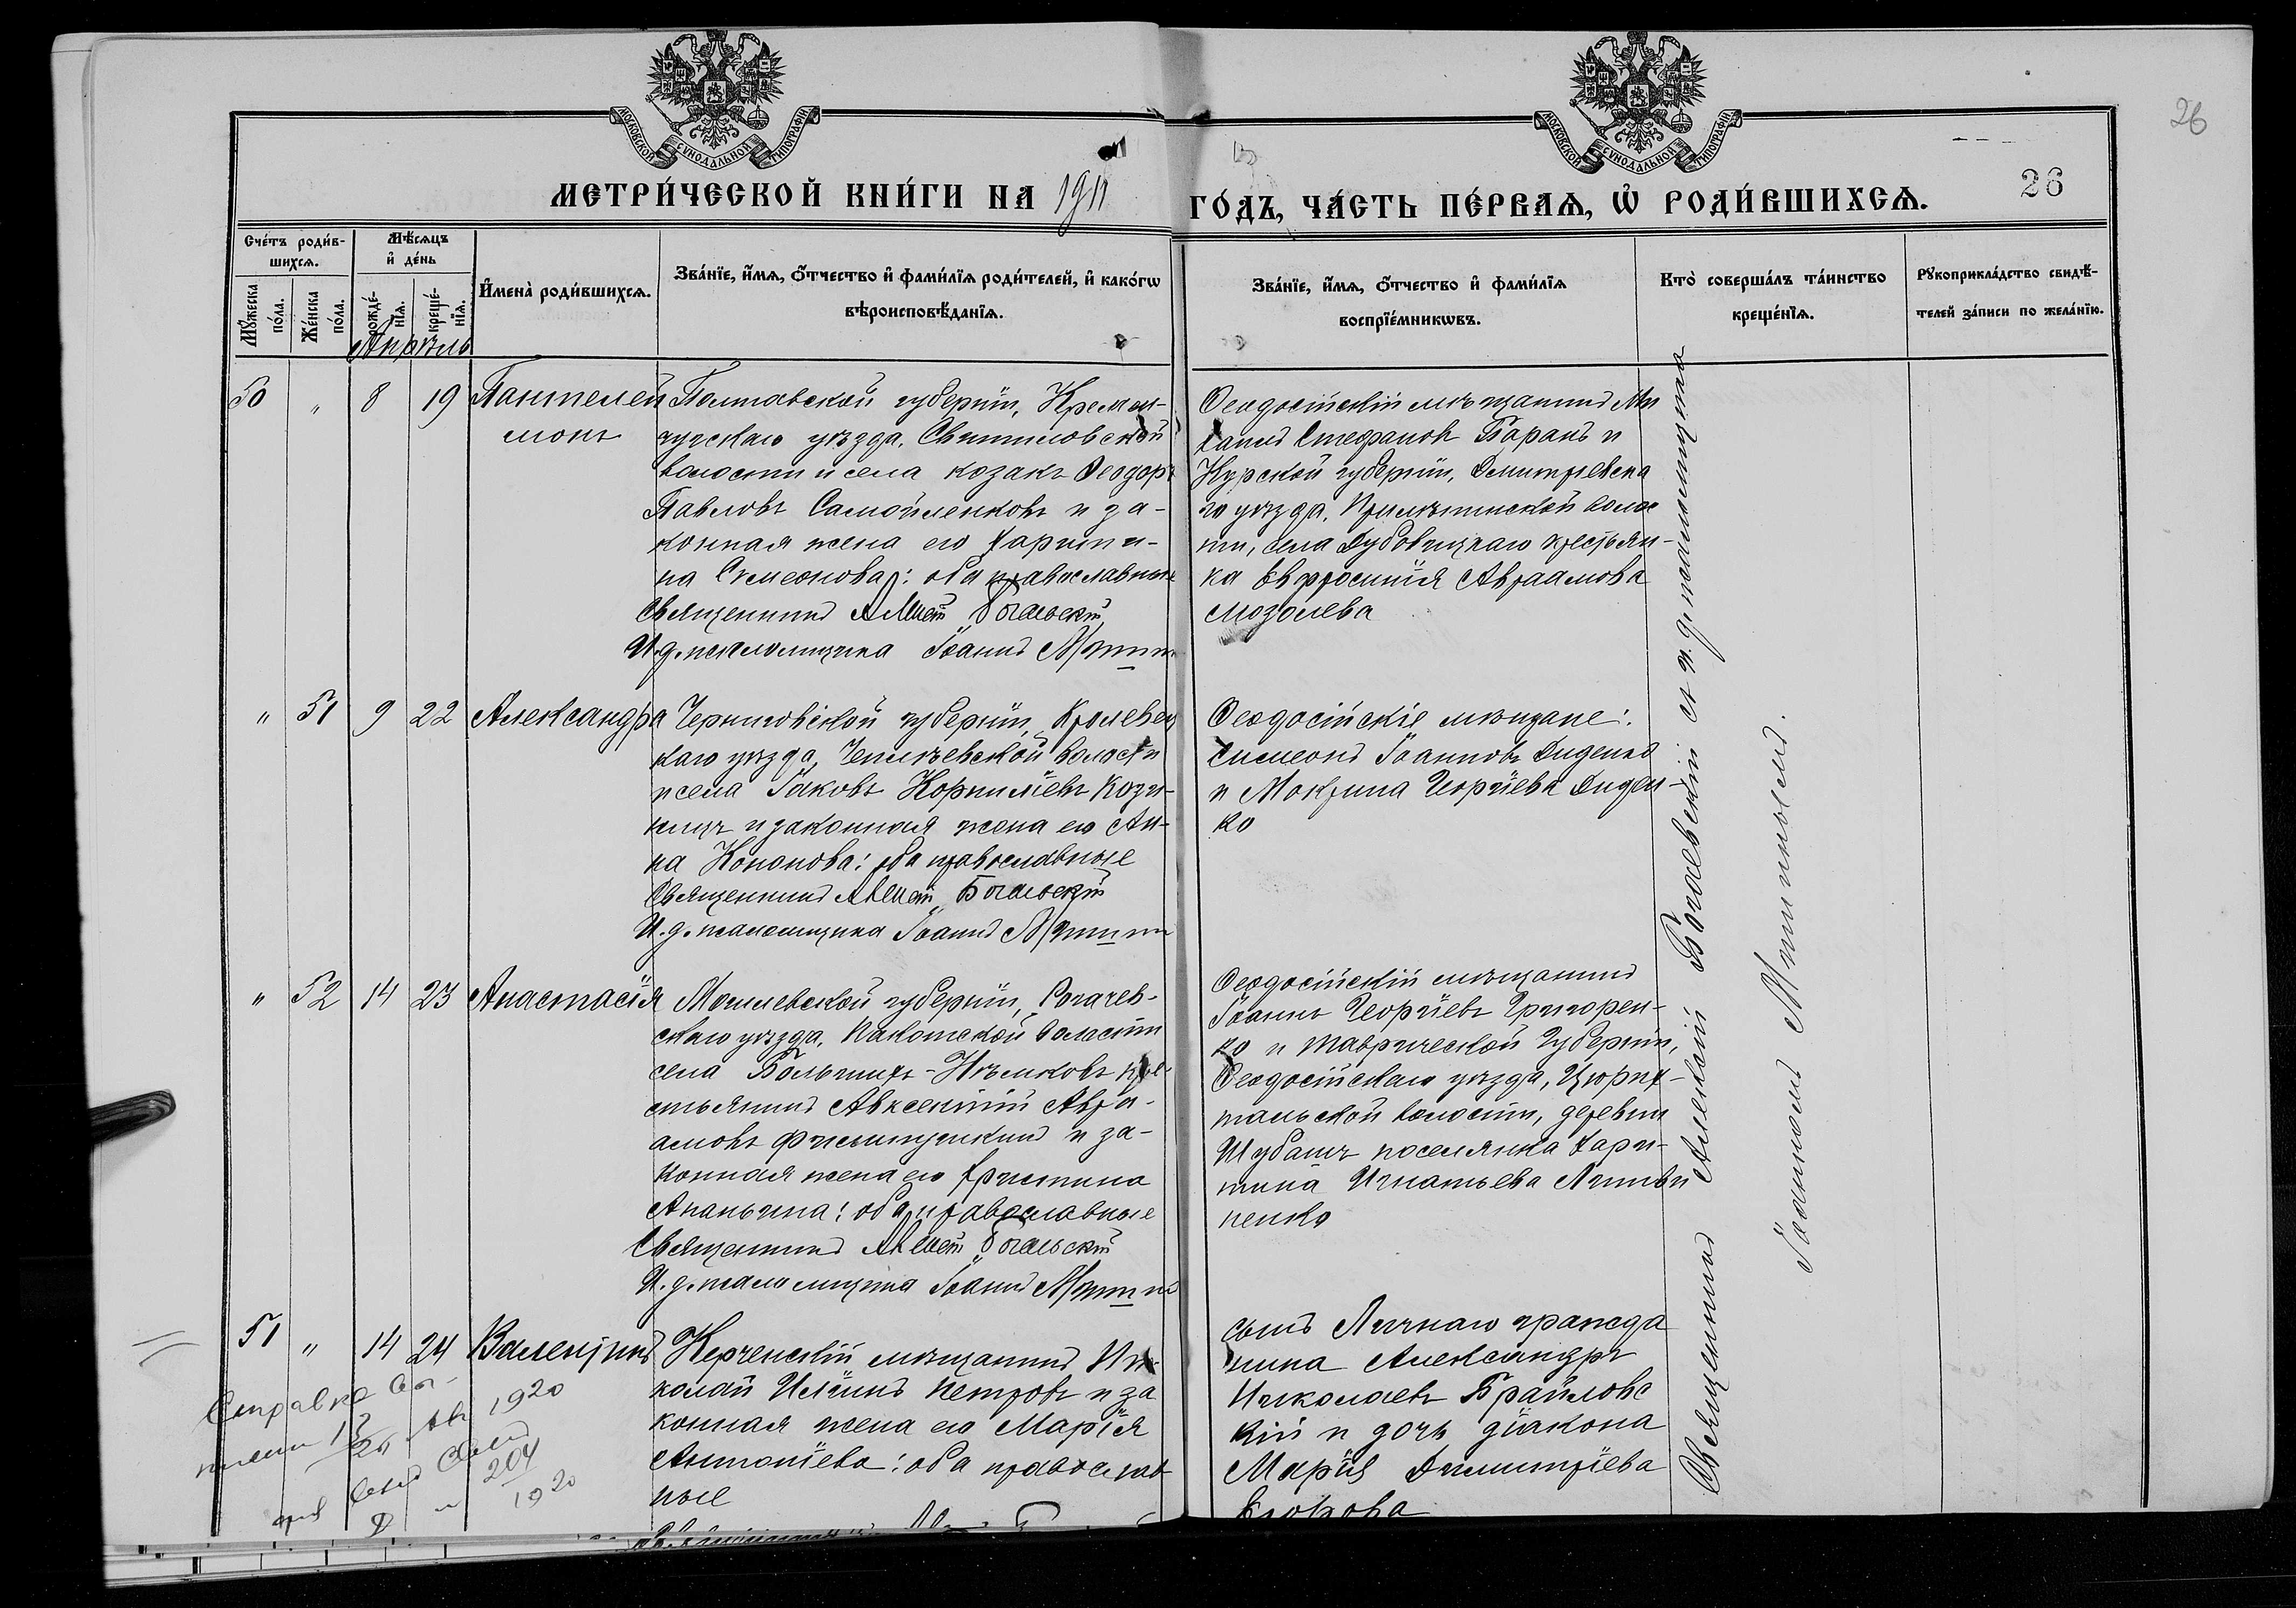 26
МОСКОВСКОЙ СѴНОДАЛЬНОЙ ТИПОГРАФІИ
МОСКОВСКОЙ СѴНОДАЛЬНОЙ ТИПОГРАФІИ
МЕТРИ́ЧЕСКОЙ КНИ́ГИ НА 1911
ГО́ДЪ, ЧА́СТЬ ПЕ́РВАѦ, Ѡ҆ РОДИ́ВШИХСѦ.
26
Сче́тъ роди́в-
шихсѧ.
Мꙋ́жеска
по́ла.
Же́нска
по́ла.
Мѣ́сѧцъ
и҆ де́нь
рожде́-
нїѧ.
креще́-
нїѧ.
И҆мена̀ роди́вшихсѧ.
Зва́нїе, и҆́мѧ, ѻ҆́тчество и҆ фами́лїѧ роди́телей, и҆ како́гѡ
вѣроисповѣ́данїѧ.
Зва́нїе, и҆́мѧ, ѻ҆́тчество и҆ фами́лїѧ
воспрїе́мникѡвъ.
Кто̀ соверша́лъ та́инство
креще́нїѧ.
Рꙋкоприкла́дство свидѣ́-
телей за́писи по жела́нїю.
Апрѣль
50 " 8 19 Пантелей
монъ
Полтавской губерніи, Кремен-
чугскаго уѣзда,
волости и села козакъ Ѳеодоръ
Павловъ Самойленковъ и за-
конная жена его Харити-
на Симеонова: оба православные
Священникъ Алексій Богаевскій
И. д. псаломщика Іоаннъ
Ѳеодосійскій мѣщанинъ Ми
хаилъ Стефановъ Баранъ и
Курской губерніи, Дмитріевска
го уѣзда, волос
ти, села Дубовицкаго крестьян-
ка Евфросинія Авраамова
Мозолева
" 51 9 22 Александра
Черниговской губерніи, Кролевец
каго уѣзда, волости
и села Іаковъ Корниліевъ
и законная жена его Ан-
на Кононова: оба православные
Священникъ Алексій Богаевскій
И. д. псаломщика Іоаннъ
Ѳеодосійскіе мѣщане:
Симеонъ Іоанновъ Диденко
и Мокрина Георгіева Диден-
ко
" 52 14 23 Анастасія
Могилевской губерніи, Рогачев-
скаго уѣзда, волости
села Большихъ-Нѣмковъ кре-
стьянинъ Авксентій Авра-
амовъ и за-
конная жена его Христина
Ананьина: оба православные
Священникъ Алексій Богаевскій
И. д. псаломщика Іоаннъ
Ѳеодосійскій мѣщанинъ
Іоаннъ Георгіевъ Григорен-
ко и Таврической губерніи,
Ѳеодосійскаго уѣзда, Цюрих-
тальской волости, деревни
Шубашъ поселянка Хари-
тина Игнатьева Литви
ненко
51 " 14 24 Валентинъ
Керченскій мѣщанинъ Ни-
колай Иліинъ Петровъ и за
конная жена его Марія
Антоніева: оба православ
ные
сынъ Личнаго гражда
нина Александръ
Николаевъ Брайловс
кій и дочь діакона
Марія Димитріева
Справка вы-
1920
204
1920
Священникъ Алексій Богаевскій съ и. д. псаломщика
Іоанномъ